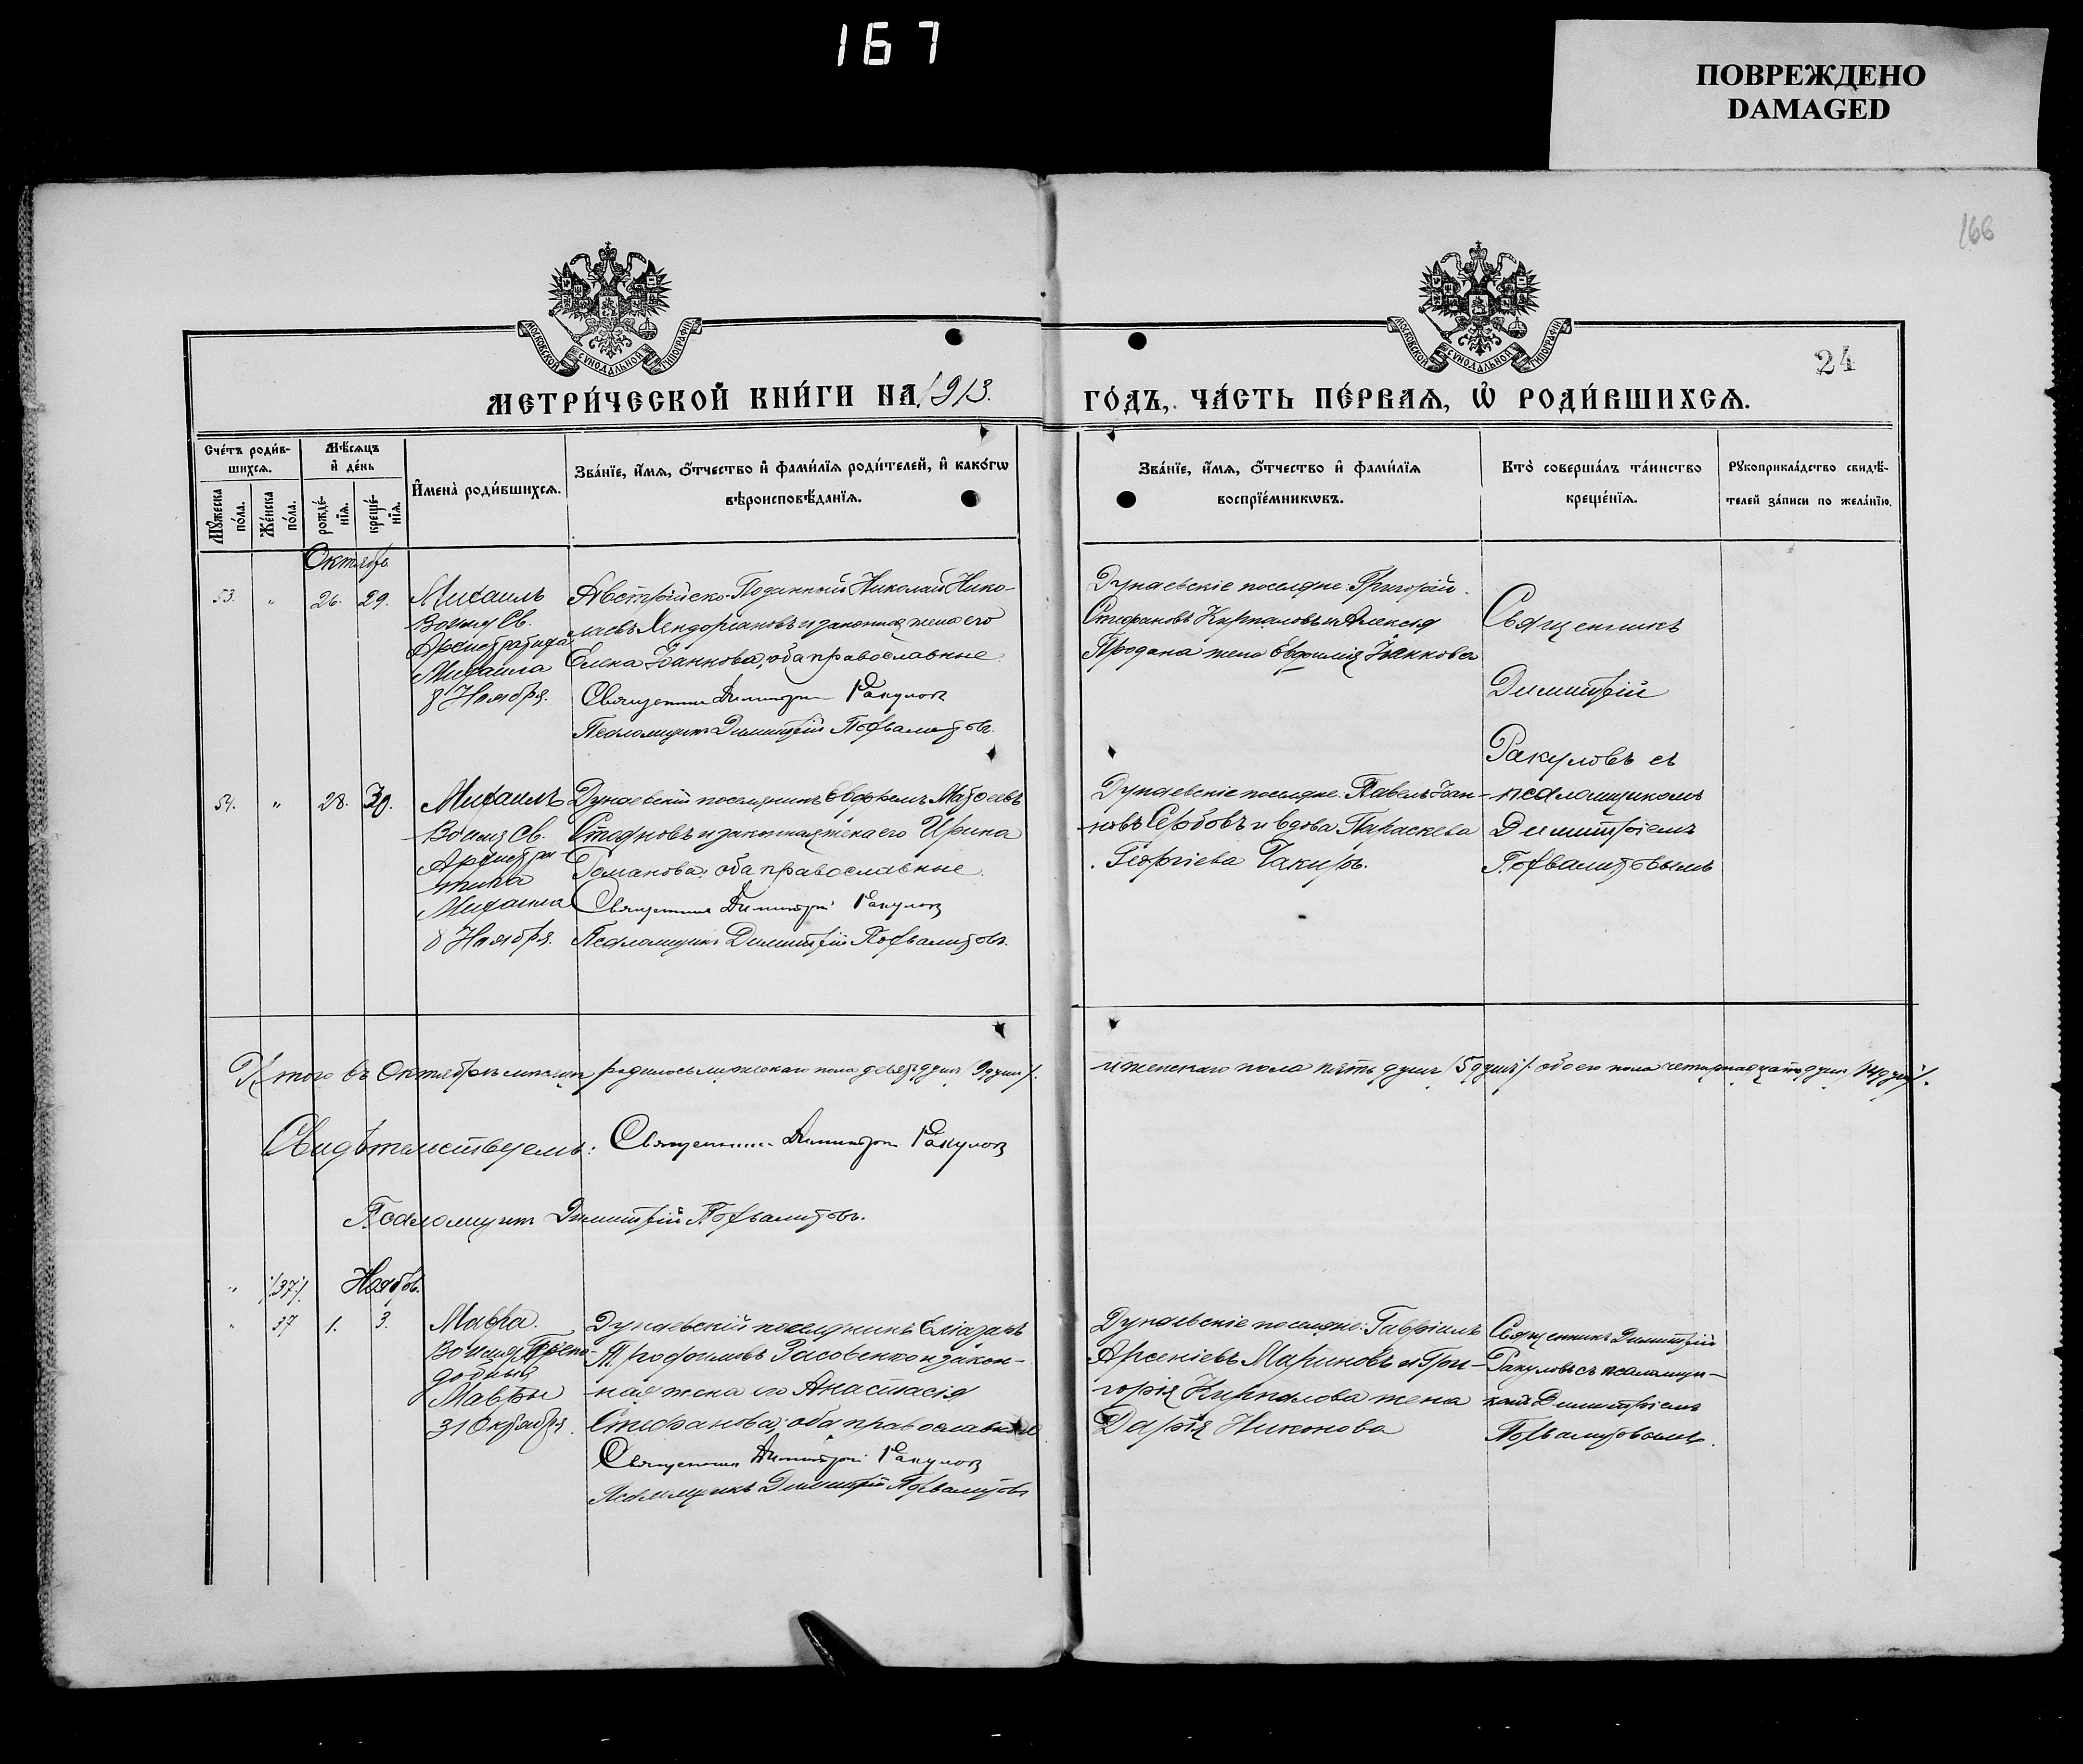 167
ПОВРЕЖДЕНО
DAMAGED
166
24
МОСКОВСКОЙ СѴНОДАЛЬНОЙ ТИПОГРАФІИ
МОСКОВСКОЙ СѴНОДАЛЬНОЙ ТИПОГРАФІИ
МЕТРИ́ЧЕСКОЙ КНИ́ГИ НА 1913. ГО́ДЪ, ЧА́СТЬ ПЕ́РВАЯ, Ѡ҆ РОДИ́ВШИХСЯ.
Сче́тъ роди́в-
шихся.
Мꙋжеска по́ла.
Же́нска по́ла.
Мѣ́сяцъ и҆ де́нь
рожде́-нїя.
креще́-нїя.
И҆мена̀ роди́вшихся.
Зва́нїе, и҆́мя, ѻ҆́тчество и҆ фами́лїя роди́телей, и҆ како́гѡ
вѣроисповѣ́данїя.
Зва́нїе, и҆́мя, ѻ҆́тчество и҆ фами́лїя
воспрїе́мникѡвъ.
Кто̀ соверша́лъ та́инство
креще́нїя.
Рꙋкоприкла́дство свидѣ́-
телей за́писи по жела́нїю.
Октябрь
53. " 26. 29.
Михаилъ
Во имя Св.
Архистратига
Михаила
8 Ноября.
Австрійско-Поданный Николай Нико-
лаевъ и законная жена его
Елена Іоаннова, оба православные
Священник Димитрий Ракулов
Псаломщикъ Димитрій Похвалитовъ.
Дунаевскіе поселяне: Григорій
Стефановъ Кирпаловъ и Алексія
Продана жена Евфимія Іоаннова
Священникъ
Димитрій
Ракуловъ съ
псаломщикомъ
Димитріемъ
Похвалитовымъ
54. " 28. 30.
Михаилъ
Во имя Св.
Архистра-
тига
Михаила
8 Ноября.
Дунаевскій поселянинъ Евфремъ Матѳеевъ
Стояновъ и законная жена его Ирина
Романова, оба православные.
Священник Димитрий Ракулов
Псаломщикъ Димитрій Похвалитовъ.
Дунаевскіе поселяне: Павелъ Іоан-
новъ Сербовъ и вдова Параскева
Георгіева Чакиръ.
Итого въ Октябрѣ мѣсяцѣ родилось мужескаго пола девять душъ /9 душъ/.
и женскаго пола пять душъ /5 душъ/. обоего пола четырнадцать душъ /14 душъ/.
Свидѣтельствуемъ: Священник Димитрий Ракулов
Псаломщикъ Димитрій Похвалитовъ.
" /37/. Ноябрь.
" 37 1. 3.
Мавра.
Во имя Препо-
добныя
Мавры
31 Октября.
Дунаевскій поселянинъ Елиазаръ
Трофимовъ Засовенко и закон-
ная жена его Анастасія
Стефанова, оба православные
Священник Димитрий Ракулов
Псаломщикъ Димитрій Похвалитовъ
Дунаевскіе поселяне: Гавріилъ
Арсеніевъ Мариновъ и Гри-
горія Кирпалова жена
Дарія Никонова
Священникъ Димитрій
Ракуловъ съ псаломщи-
комъ Димитріемъ
Похвалитовымъ.